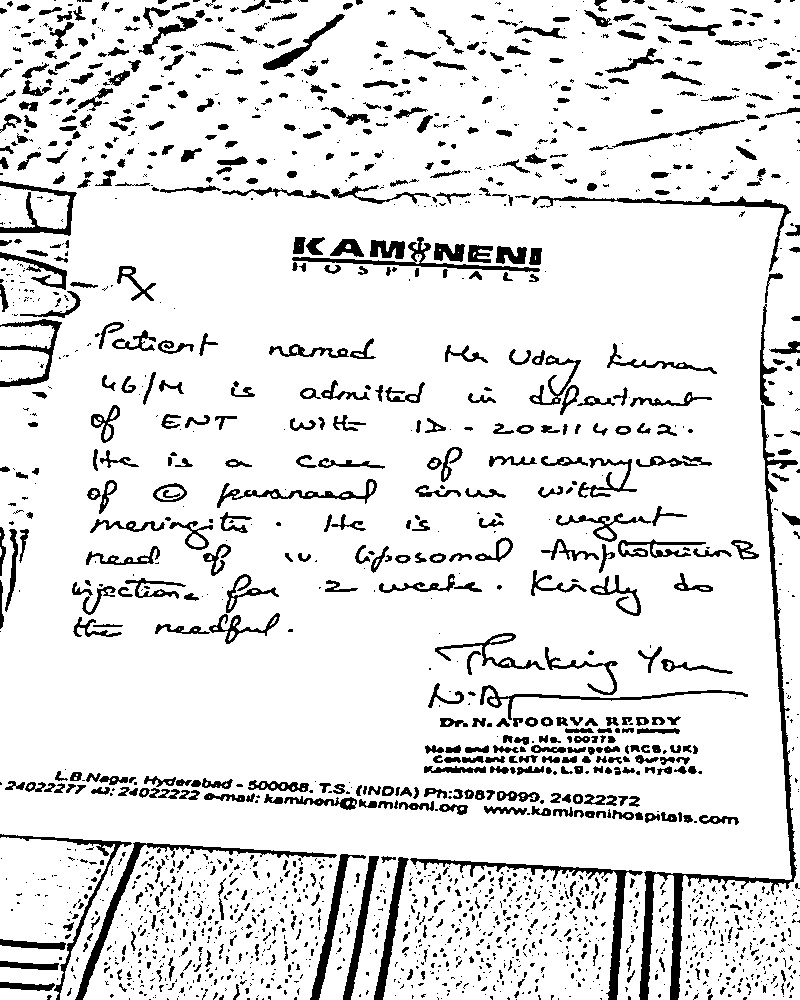 KAMINENI
HOSPITALS
Rx
Patient named Mr Uday Kumar
46/M is admitted in department
of ENT with ID - 202114042.
He is a case of mucormycosis
of © paranasal sinus with
meningitis. He is in urgent
need of iv liposomal Amphotericin B
injections for 2 weeks. Kindly do
the needful.
Thanking You
N.A
Dr. N. APOORVA REDDY
Reg. No. 100273
Head and Neck Oncosurgeon (RCS, UK)
Consultant ENT Head & Neck Surgery
Kamineni Hospitals, L.B. Nagar, Hyd-68.
L.B.Nagar, Hyderabad - 500068. T.S. (INDIA) Ph:39879999, 24022272
24022277 24022222 e-mail: kamineni@kamineni.org www.kaminenihospitals.com